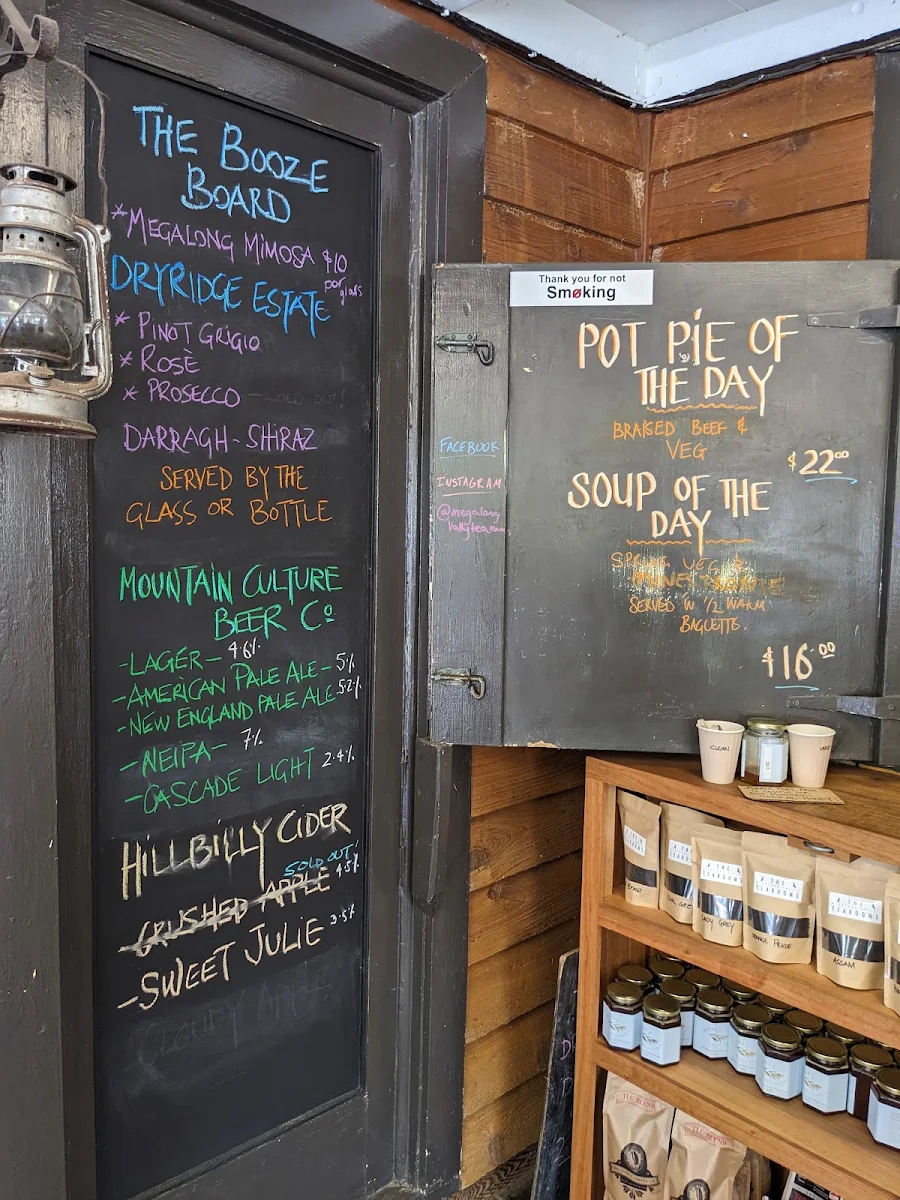 THE BOOZE
BOARD
*MEGALONG MIMOSA $10
per glass
DRYRIDGE ESTATE
* PINOT GRIGIO
* ROSÈ
* PROSECCO - SOLD OUT!
DARRAGH - SHIRAZ
SERVED BY THE
GLASS OR BOTTLE
MOUNTAIN CULTURE
BEER Cº
-LAGER- 4.6%
-AMERICAN PALE ALE- 5%
-NEW ENGLAND PALE ALE- 5.2%
-NEIPA- 7%
-CASCADE LIGHT 2.4%
HILLBILLY CIDER
SOLD OUT!
-CRUSHED APPLE 4.5%
-SWEET JULIE 3.5%
CLOUDY APPLE
Thank you for not
Smøking
FACEBOOK
INSTAGRAM
@megalong
POT PIE OF
THE DAY
BRAISED BEEF &
VEG
$22.00
SOUP OF THE
DAY
SPRING VEG &
SERVED W 1/2 WARM
BAGUETTE.
$16.00
CLEAN
THE
TEAROOMS
LADY GREY
THE
TEAROOMS
ORANGE PEKOE
THE
TEAROOMS
ASSAM
TLC BLEND